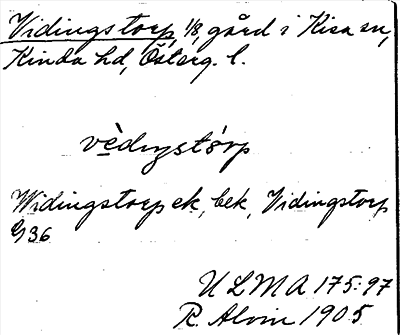 Vidingstorp, 1/8, gård i Kisa sn,
Kinda hd, Österg. l.
vèdɩŋstórp
Widingstorp ek, bek, Vidingstorp
G 36
ULMA 175:97
R. Alvin 1905